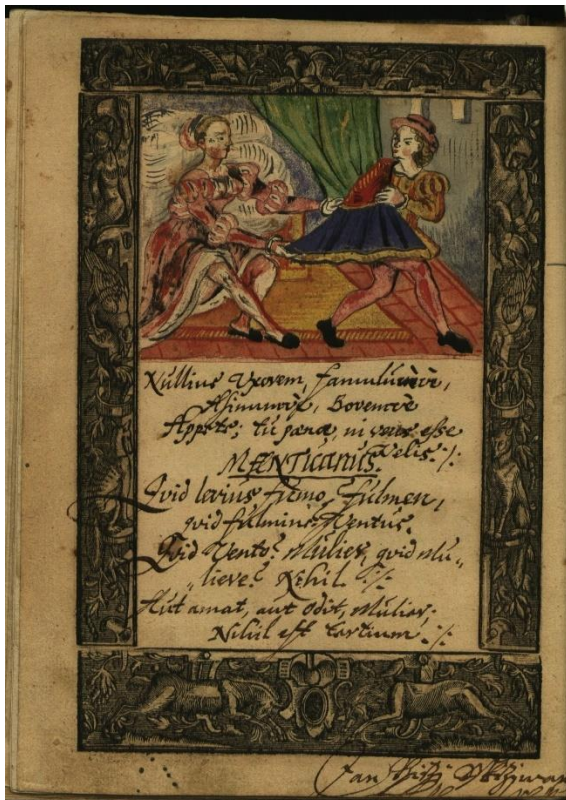 Nullius Uxorem, famulumve,
Asinumve, Bovemve
Appete; tu pænæ, ni reus esse
Velis ·/.
Qvid levius fumo, fulmen,
qvid fulmine, Ventus,
Qvid Vento? Mulier, qvid Mu„
liere? Nihil ·/.
Aut amat, aut odit, Mulier;
Nihil est tertium ·/.
Jan